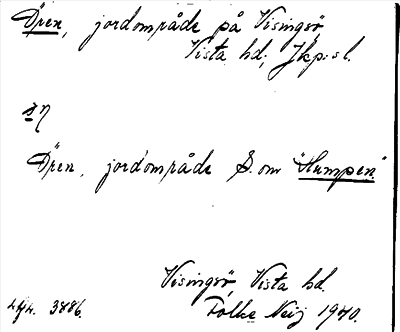 Ören, jordområde på Visingsö,
Vista hd; Jkp:s l.
Ören, jordområde S. om "Humpen."
Visingsö, Vista hd.
Folke Neij 1940.
3886.